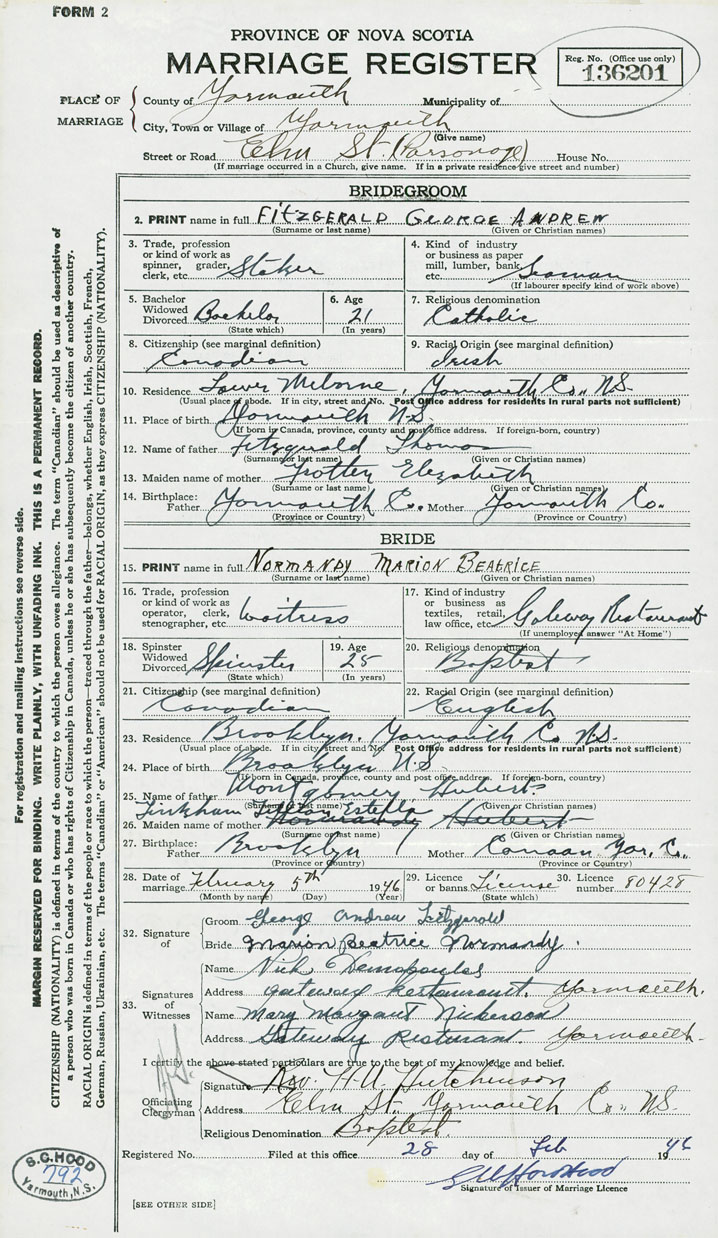 FORM 2
PROVINCE OF NOVA SCOTIA
MARRIAGE REGISTER
Reg. No. (Office use only)
136201
PLACE OF MARRIAGE
County of Yarmouth Municipality of
City, Town or Village of Yarmouth
(Give name)
Street or Road Elm St (Parsonage) House No.
(If marriage occurred in a Church, give name. If in a private residence give street and number)
BRIDEGROOM
2. PRINT name in full FITZGERALD GEORGE ANDREW
(Surname or last name) (Given or Christian names)
3. Trade, profession or kind of work as spinner, grader, clerk, etc. Stoker
4. Kind of industry or business as paper mill, lumber, bank, etc. Seaman
(If labourer specify kind of work above)
5. Bachelor Widowed Divorced Bachelor
(State which)
6. Age 21
(In years)
7. Religious denomination
Catholic
8. Citizenship (see marginal definition)
Canadian
9. Racial Origin (see marginal definition)
Irish
10. Residence Lower Melborne, Yarmouth Co. N.S.
(Usual place of abode. If in city, street and No. Post Office address for residents in rural parts not sufficient)
11. Place of birth Yarmouth N.S.
(If born in Canada, province, county and post office address. If foreign-born, country)
12. Name of father Fitzgerald Thomas
(Surname or last name) (Given or Christian names)
13. Maiden name of mother Trotter Elizabeth
(Surname or last name) (Given or Christian names)
14. Birthplace: Father Yarmouth Co. Mother Yarmouth Co.
(Province or Country) (Province or Country)
BRIDE
15. PRINT name in full NORMANDY MARION BEATRICE
(Surname or last name) (Given or Christian names)
16. Trade, profession or kind of work as operator, clerk, stenographer, etc. Waitress
17. Kind of industry or business as textiles, retail, law office, etc. Gateway Restaurant
(If unemployed answer "At Home")
18. Spinster Widowed Divorced Spinster
(State which)
19. Age 25
(In years)
20. Religious denomination
Baptist
21. Citizenship (see marginal definition)
Canadian
22. Racial Origin (see marginal definition)
English
23. Residence Brooklyn, Yarmouth Co N.S.
(Usual place of abode. If in city street and No. Post Office address for residents in rural parts not sufficient)
24. Place of birth Brooklyn N.S.
(If born in Canada, province, county and post office address. If foreign-born, country)
25. Name of father Montgomery Hubert
(Surname or last name) (Given or Christian names)
Tinkham Estella
26. Maiden name of mother Normandy Hubert
(Surname or last name) (Given or Christian names)
27. Birthplace: Father Brooklyn Mother Canaan Yar. Co.
(Province or Country) (Province or Country)
28. Date of marriage February 5th 1946
(Month by name) (Day) (Year)
29. Licence or banns License
(State which)
30. Licence number 80428
32. Signature of
Groom George Andrew Fitzgerald
Bride Marion Beatrice Normandy.
33. Signatures of Witnesses
Name Nick Demopoulos
Address Gateway Restaurant. Yarmouth.
Name Mary Margaret Nickerson
Address Gateway Resturant. Yarmouth.
I certify the above stated particulars are true to the best of my knowledge and belief.
Officiating Clergyman
Signature Rev. H. A. Hutchinson
Address Elm St. Yarmouth Co. N.S.
Religious Denomination Baptist.
Registered No. Filed at this office 28 day of Feb 1946
Signature of Issuer of Marriage Licence
[SEE OTHER SIDE]
S.G. HOOD
792
Yarmouth, N.S.
For registration and mailing instructions see reverse side.
MARGIN RESERVED FOR BINDING. WRITE PLAINLY, WITH UNFADING INK. THIS IS A PERMANENT RECORD.
CITIZENSHIP (NATIONALITY) is defined in terms of the country to which the person owes allegiance. The term "Canadian" should be used as descriptive of
a person who was born in Canada or who has rights of Citizenship in Canada, unless he or she has subsequently become the citizen of another country.
RACIAL ORIGIN is defined in terms of the people or race to which the person—traced through the father—belongs, whether English, Irish, Scottish, French,
German, Russian, Ukrainian, etc. The terms "Canadian" or "American" should not be used for RACIAL ORIGIN, as they express CITIZENSHIP (NATIONALITY).